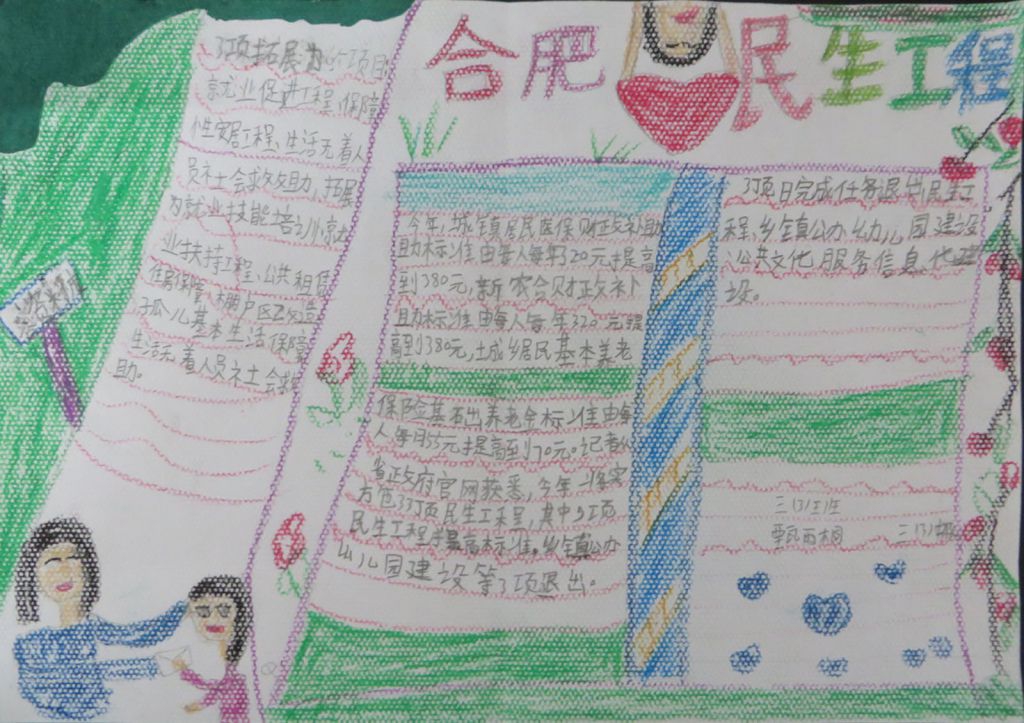 合肥民生工程
3项拓展为4个项目
就业促进工程、保障
性安居工程、生活无着人
员社会救助,拓展
为就业技能培训、就
业扶持工程、公共租赁
住房保障、棚户区改造
孤儿基本生活保障
生活无着人员社会救
助。
今年,城镇居民医保财政补助
助标准由每人每年320元提高
到380元,新农合财政补
助标准由每人每年320元提
高到380元,城乡居民基本养老
保险基础出养老金标准由每
人每月55元提高到70元。记者从
省政府官网获悉,今年将实
方色33项民生工程,其中9项
民生工程将提高标准。乡镇公办
幼儿园建设等3项退出。
3项目完成任务退出民生工
程、乡镇公办幼儿园建设
公共文化服务信息化建
设。
三(3)班
甄雨桐
三(3)